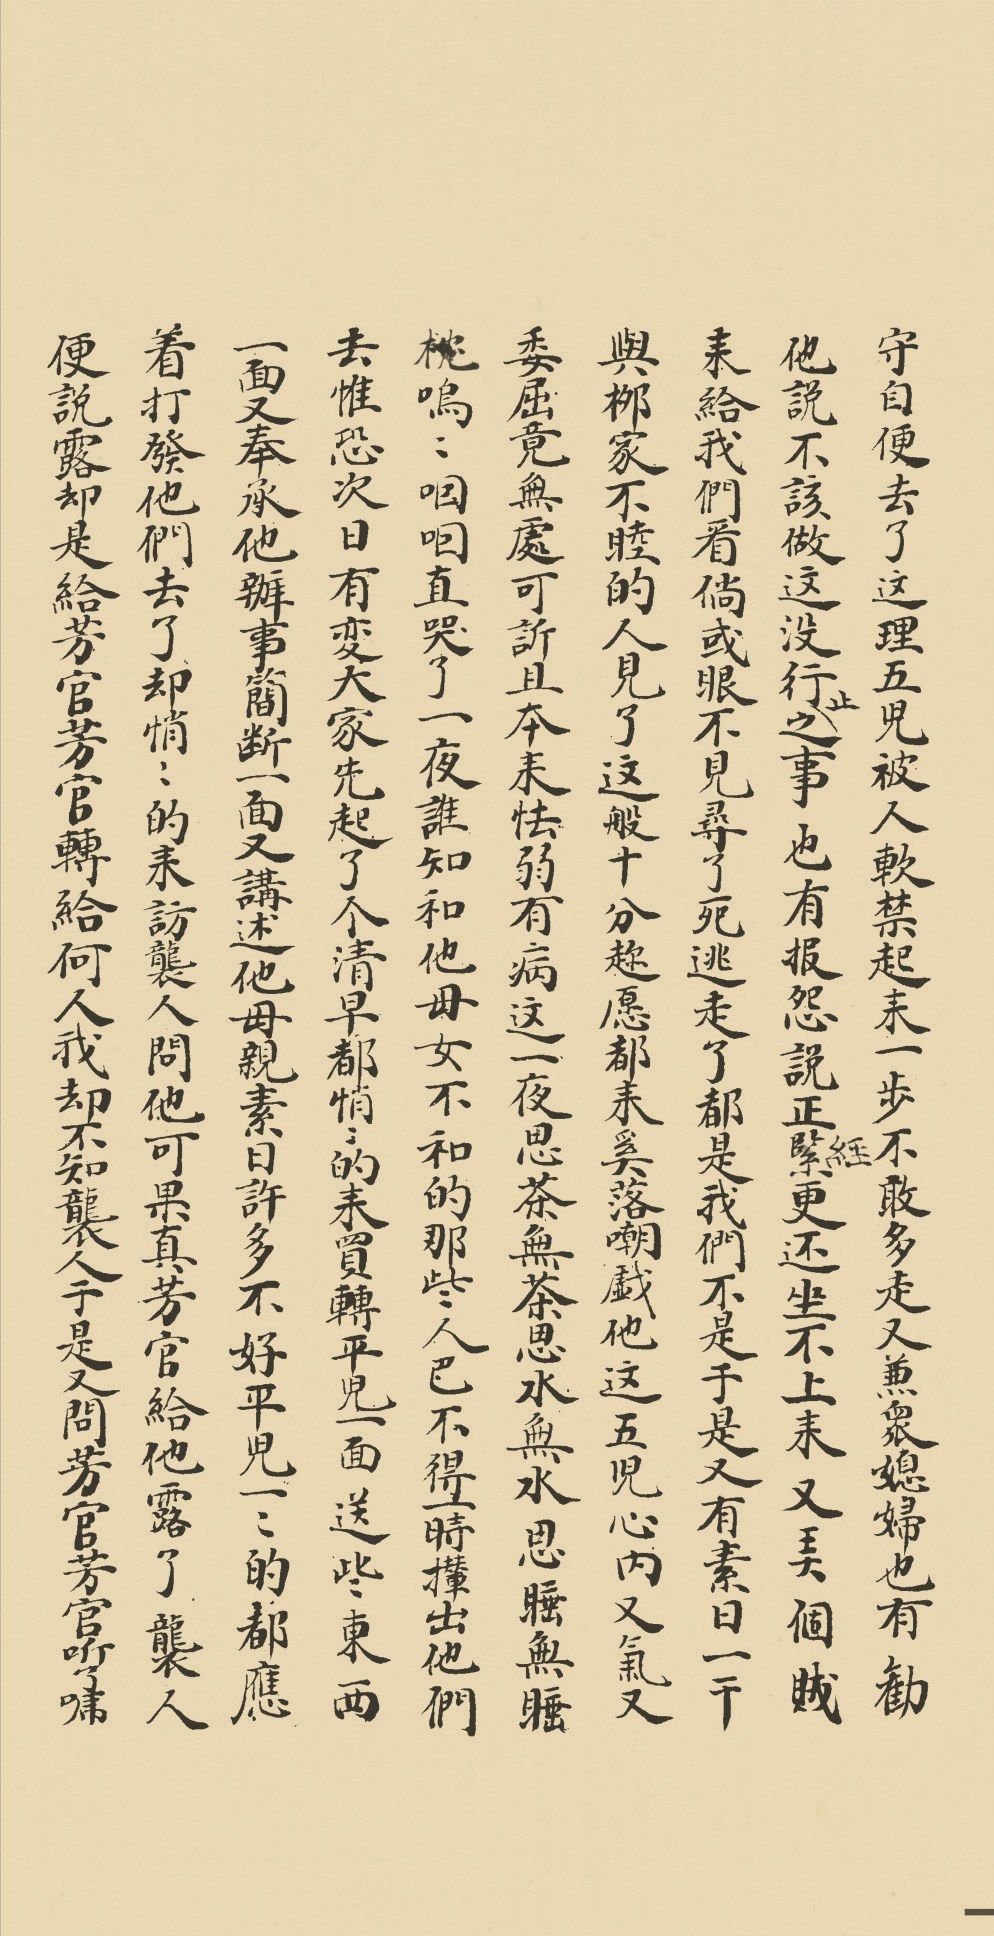 守自便去了这理五児被人軟禁起来一步不敢多走又兼衆媳婦也有勸
他說不該做这没行止之事也有报怨說正緊經更还坐不上来又弄個賊
来給我們看倘或眼不見尋了死逃走了都是我們不是于是又有素日一干
與柳家不睦的人見了这般十分趂愿都来奚落嘲戯他这五児心内又氣又
委屈竟無處可訴且本来怯弱有病这一夜思茶無茶思水無水思睡無睡
枕嗚〻咽咽直哭了一夜誰知和他毋女不和的那些人巴不得一時攆出他們
去惟恐次日有变大家先起了个清早都悄〻的来買轉平児一面送些東西
一面又奉承他辦事簡断一面又講述他毋親素日許多不好平児一〻的都應
着打發他們去了却悄〻的来訪襲人問他可果真芳官給他露了襲人
便說露却是給芳官芳官轉給何人我却不知襲人于是又問芳官芳官听了嚇